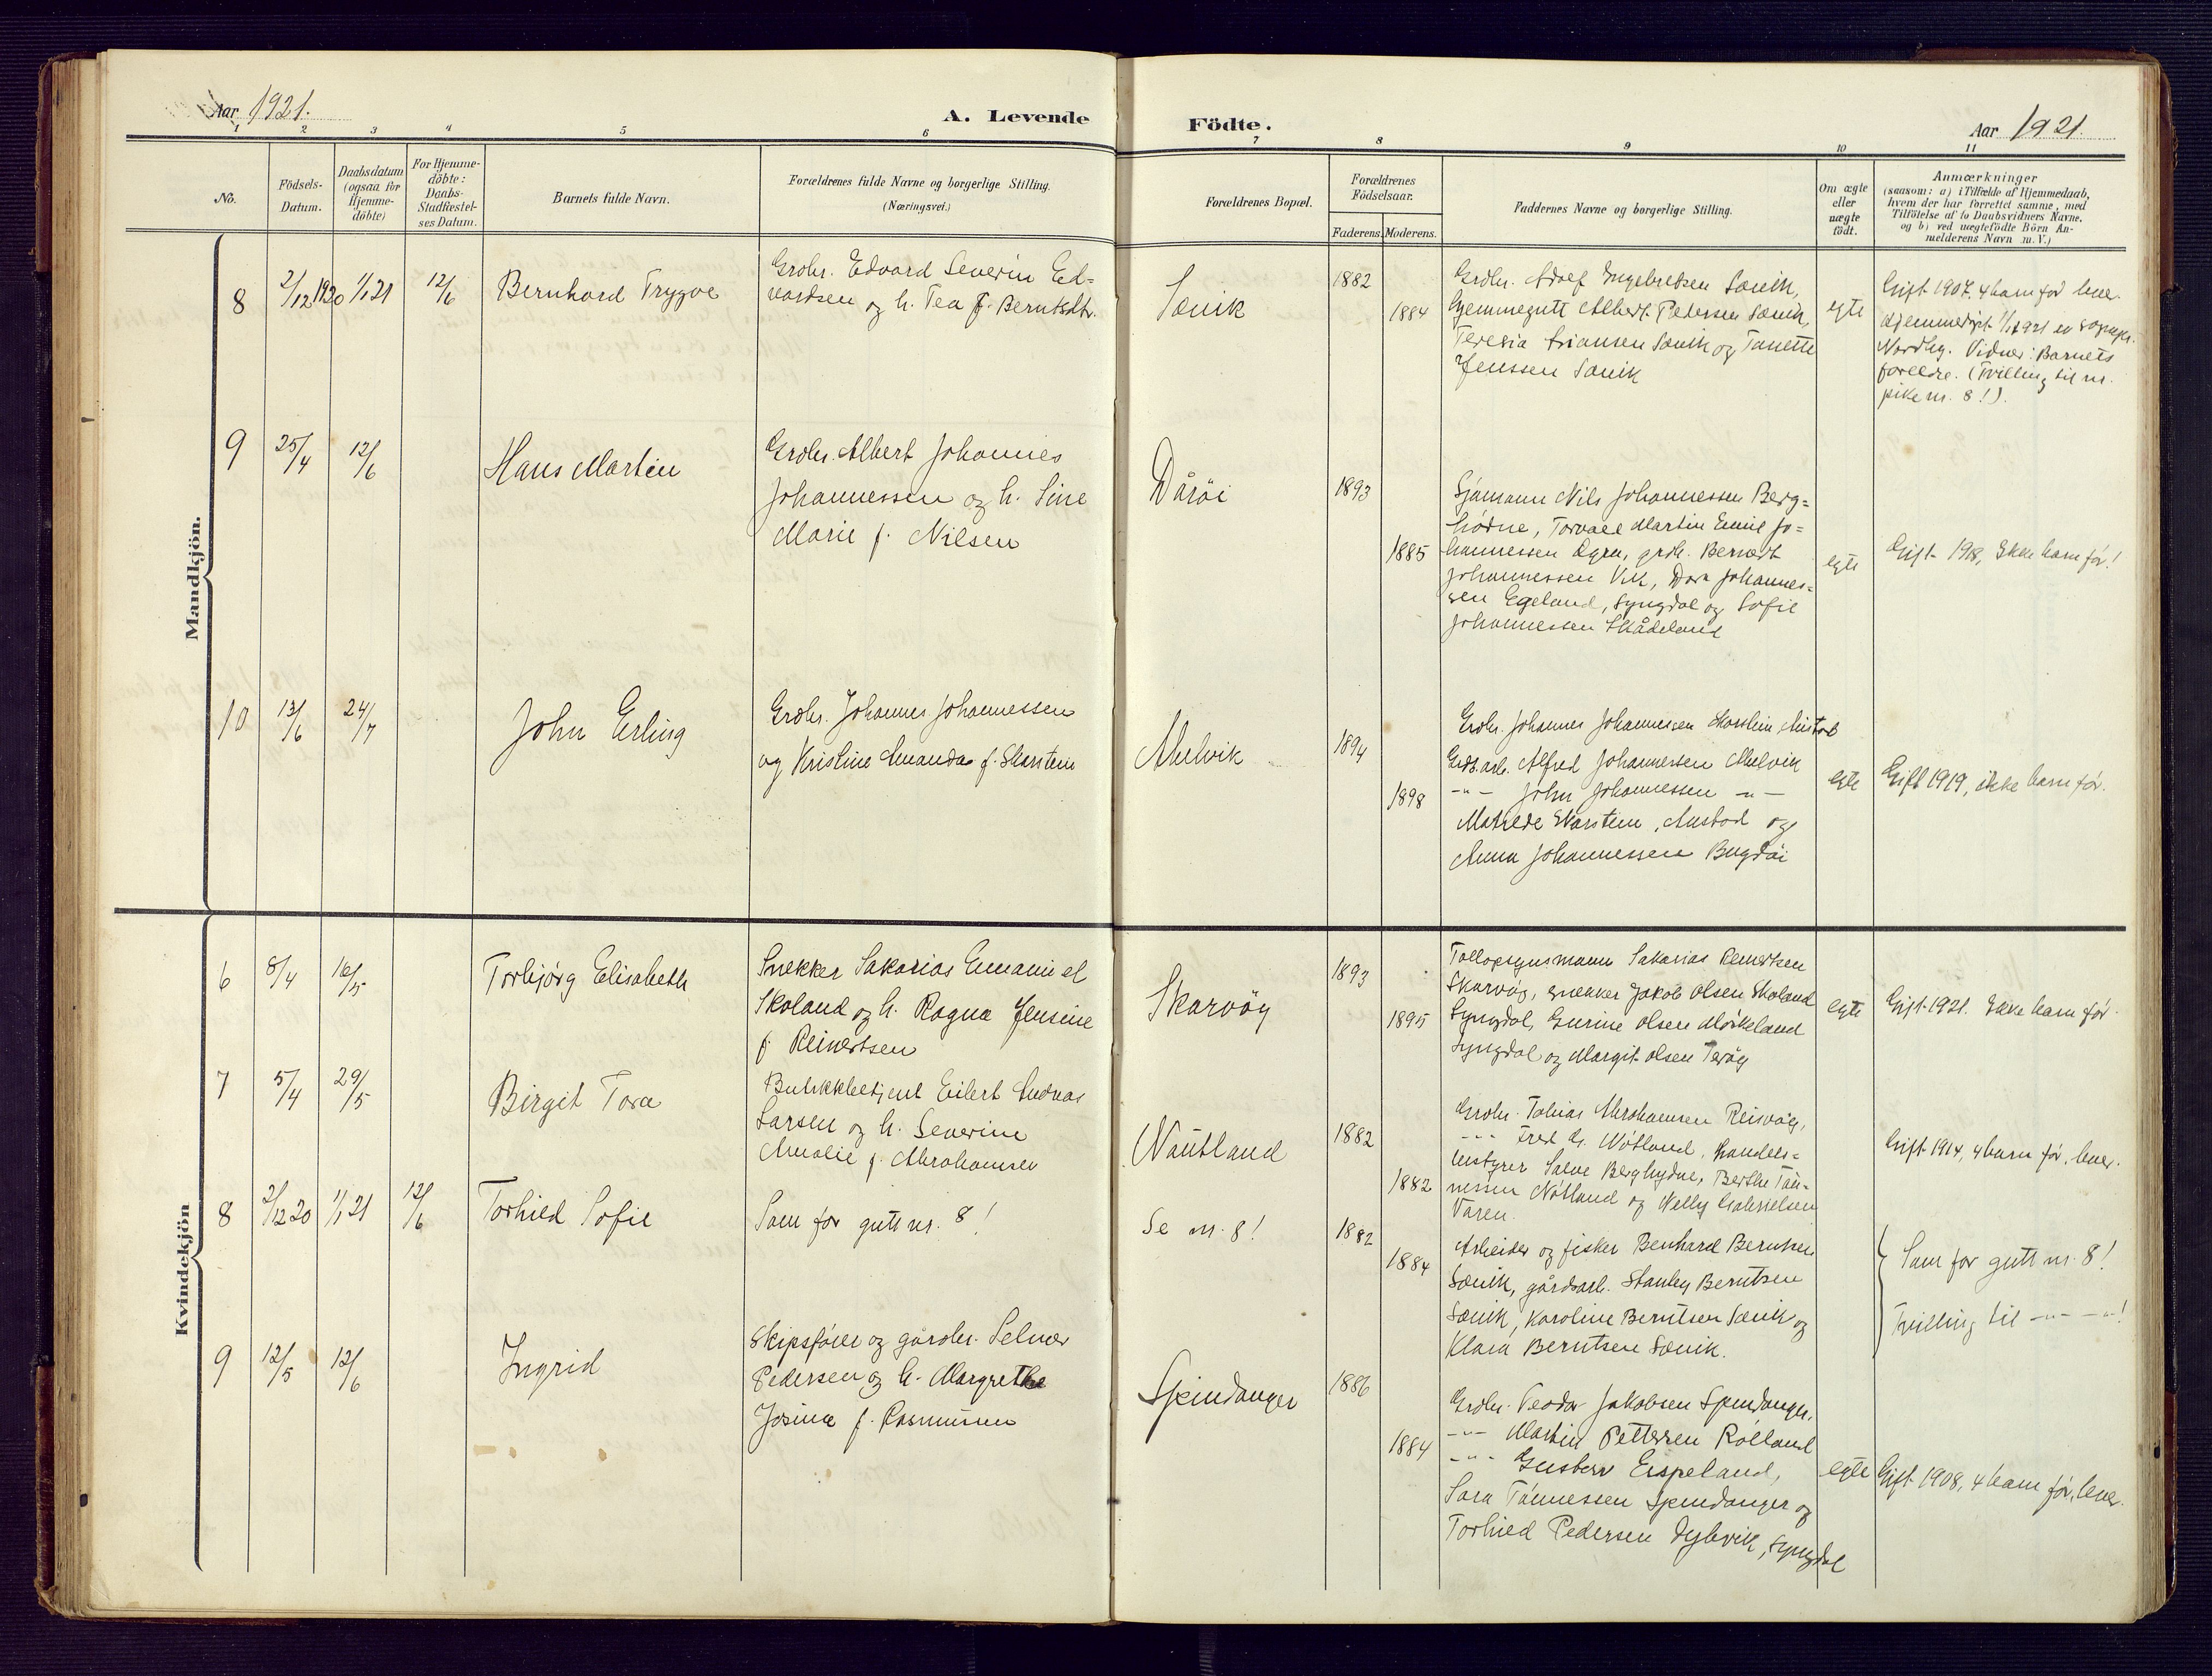 Aar 1921.
A. Levende Födte.
Aar 1921.
1 2 3 4 5 6 7 8 9 10 11
No.
Födsels-
Datum.
Daabsdatum
(ogsaa for
Hjemme-
döbte)
For Hjemme-
döbte:
Daabs-
Stadfæstel-
ses Datum.
Barnets fulde Navn.
Forældrenes fulde Navne og borgerlige Stilling.
(Næringsvei.)
Forældrenes Bopæl.
Forældrenes
Födselsaar.
Faderens. Moderens.
Faddernes Navne og borgerlige Stilling.
Om ægte
eller
uægte
födt.
Anmærkninger
(saasom: a) i Tilfælde af Hjemmedaab,
hvem der har forrettet samme, med
Tilföielse af to Daabsvidners Navne,
og b) ved uægtefödte Börn An-
melderens Navn m. V.)
Mandkjön.
8
2/12 1920
1/1 21
12/6
Bernhard Trygve
Grdbr. Edvard Severin Ed=
vardsen og h. Tea f. Berntsdtr.
Sævik
1882
1884
Grdbr. Adolf Ingebretsen Sævik,
Hjemmegutt Albert Pedersen Sævik,
Teresia Sævik og Tanette
Jenssen Sævik
egte
Gift 1907. 4 barn før lever.
Hjemmedøpt 1/1 1921 av
Nordby. Vidner: Barnets
foreldre. (Tvilling til nr.
pike nr. 8!).
9
25/4
12/6
Hans Martin
Grdbr. Albert Johannes
Johannessen og h. Sine
Marie f. Nilsen
Dårøi
1893
1885
Sjømann Nils Johannessen Berg=
hødne, Torvald Martin Emil Jo=
hannessen Ågea, grdb. Berndt
Johannessen Vik, Dora Johannes=
sen Egeland, Lyngdal og Sofie
Johannessen Skådeland
egte
Gift 1918, Ikke barn før!
10
13/6
24/7
John Erling
Grdbr. Johannes Johannessen
og Kristine Amanda f. Skarstein
Ahelvik
1894
1898
Grdbr. Johannes Johannessen Skarstein, Austad
Grdsarb. Alfred Johannessen Ahelvik
-"- John Johannessen -"-
Matilde Skarstein, Austad og
Anna Johannessen Bugdøi
egte
Gift 1919, ikke barn før.
Kvindekjön
6
8/4
16/5
Torbjørg Elisabeth
Snekker Sakarias Emanuel
Skoland og h. Ragna Jensine
f. Reinertsen
Skarvøy
1893
1895
Tollopsynsmann Sakarias Reinertsen
Skarvøy, snekker Jakob Olsen Skoland
Lyngdal, Gurine Olsen Mørkeland
Lyngdal og Margit Olsen Terøy
egte
Gift 1921. Ikke barn før.
7
5/4
29/5
Birgit Tora
Butikkbetjent Eilert Andreas
Larsen og h. Severine
Amalie f. Abrahamsen
Nøutland
1882
1882
Grdbr. Tobias Abrahamsen Reisvåg,
-"- Fred Nøtland, handels=
bestyrer Salve Berghydne, Berthe Tøn=
nessen Nøtland og Nelly Gabrielsen
Våren.
Gift 1914, 4 barn før, lever.
8
2/12 20
1/1 21
12/6
Torhild Sofie
Som for gutt nr. 8!
Se nr. 8!
1882
1884
Arbeider og fisker Benhard Berntsen
Sævik, gårdsarb. Stanley Berntsen
Sævik, Karoline Berntsen Sævik og
Klara Berntsen Sævik.
Som for gutt nr. 8!
Tvilling til -"- -"-!
9
12/5
12/6
Ingrid
Skipsfører og gårdbr. Selmer
Pedersen og h. Margrethe
Josina f. Rasmussen
Spindanger
1886
1884
Grdbr. Teodor Jakobsen Spindanger,
-"- Martin Pettersen Rølland
-"- Gustav Eispeland,
Sara Tønnessen Spindanger og
Torhild Pedersen Dybvik, Lyngdal
egte
Gift 1908, 4 barn før, lever.